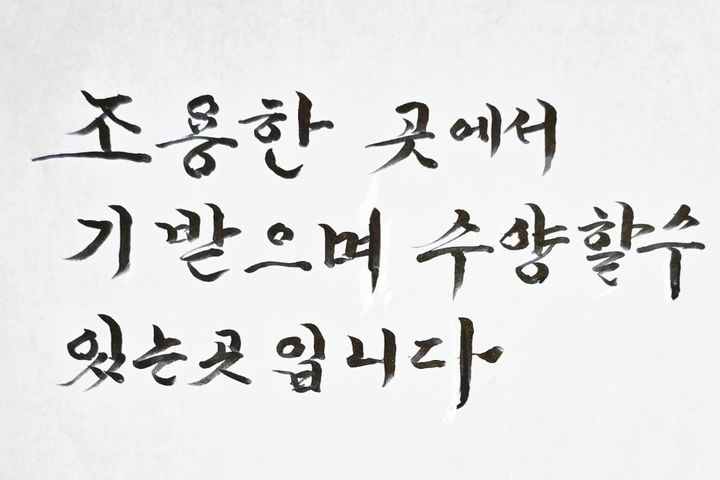 조용한 곳에서
기 받으며 수양할수
있는곳 입니다